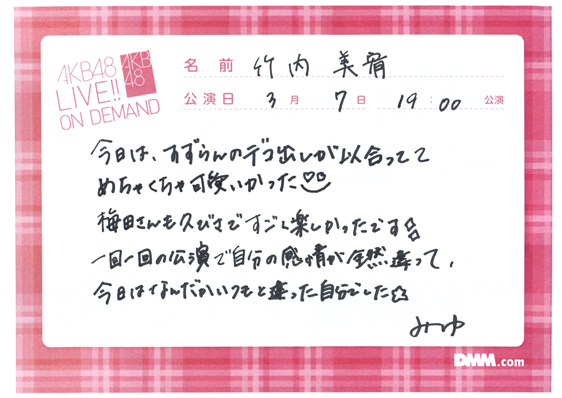 AKB48
LIVE!!
ON DEMAND
AKB
48
名前 竹内 美宥
公演日 3月 7日 19:00 公演
今日は、すずらんのデコ出しが似合ってて
めちゃくちゃ可愛いかった
梅田さんも久びさですごく楽しかったです
一回一回の公演で自分の感情が全然違って、
今日はなんだかいつもと違った自分でした☆
みゆ
DMM.com